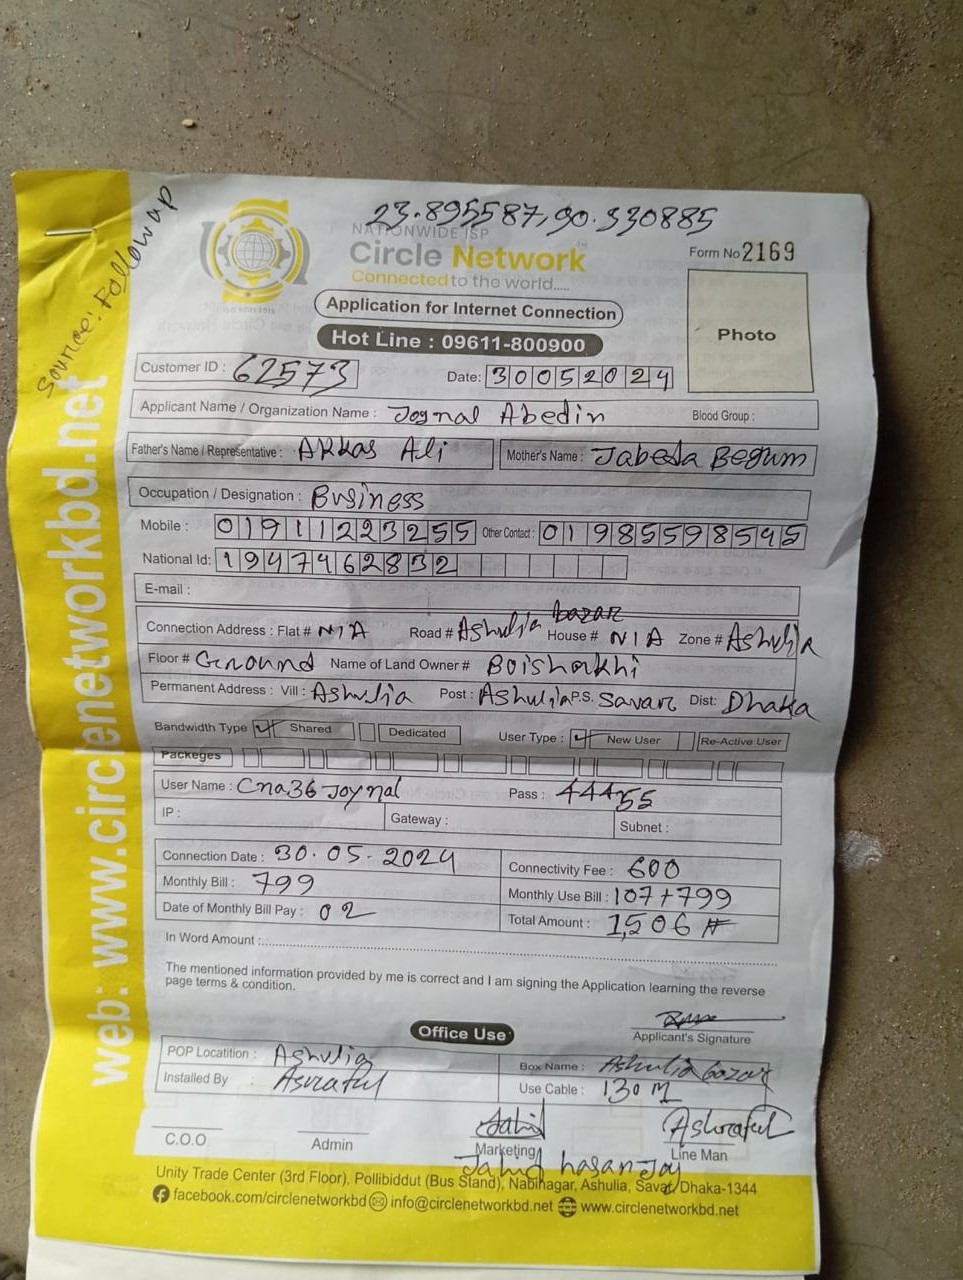 Source: Followap
23.895587,90.330885
NATIONWIDE ISP
Circle Network
Connected to the world.....
Form No 2169
Application for Internet Connection
Hot Line : 09611-800900
Photo
Customer ID : 62573 Date: 30052024
Applicant Name / Organization Name : Joynal Abedin Blood Group :
Father's Name / Representative : AKKas Ali Mother's Name : Jabeda Begum
Occupation / Designation : Business
Mobile : 01911223255 Other Contact : 01985598595
National Id: 1947462832
E-mail :
Connection Address : Flat # N/A Road # Ashulia bazar House # N/A Zone # Ashulia
Floor # Ground Name of Land Owner # Boishakhi
Permanent Address : Vill : Ashulia Post : Ashulia P.S. Savar Dist: Dhaka
Bandwidth Type Shared Dedicated User Type : New User Re-Active User
Packeges
User Name : Cna36Joynal Pass : 44455
IP : Gateway : Subnet :
Connection Date : 30.05.2024 Connectivity Fee : 600
Monthly Bill : 799 Monthly Use Bill : 107+799
Date of Monthly Bill Pay : 02 Total Amount : 1,506 #
In Word Amount :
The mentioned information provided by me is correct and I am signing the Application learning the reverse
page terms & condition.
Applicant's Signature
Office Use
POP Locatition : Ashulia Box Name : Ashulia bazar
Installed By : Asraful Use Cable : 130 M
Jahid Ashraful
C.O.O Admin Marketing Line Man
Jahid hasan Joy
Unity Trade Center (3rd Floor), Pollibiddut (Bus Stand), Nabinagar, Ashulia, Savar, Dhaka-1344
facebook.com/circlenetworkbd info@circlenetworkbd.net www.circlenetworkbd.net
web: www.circlenetworkbd.net